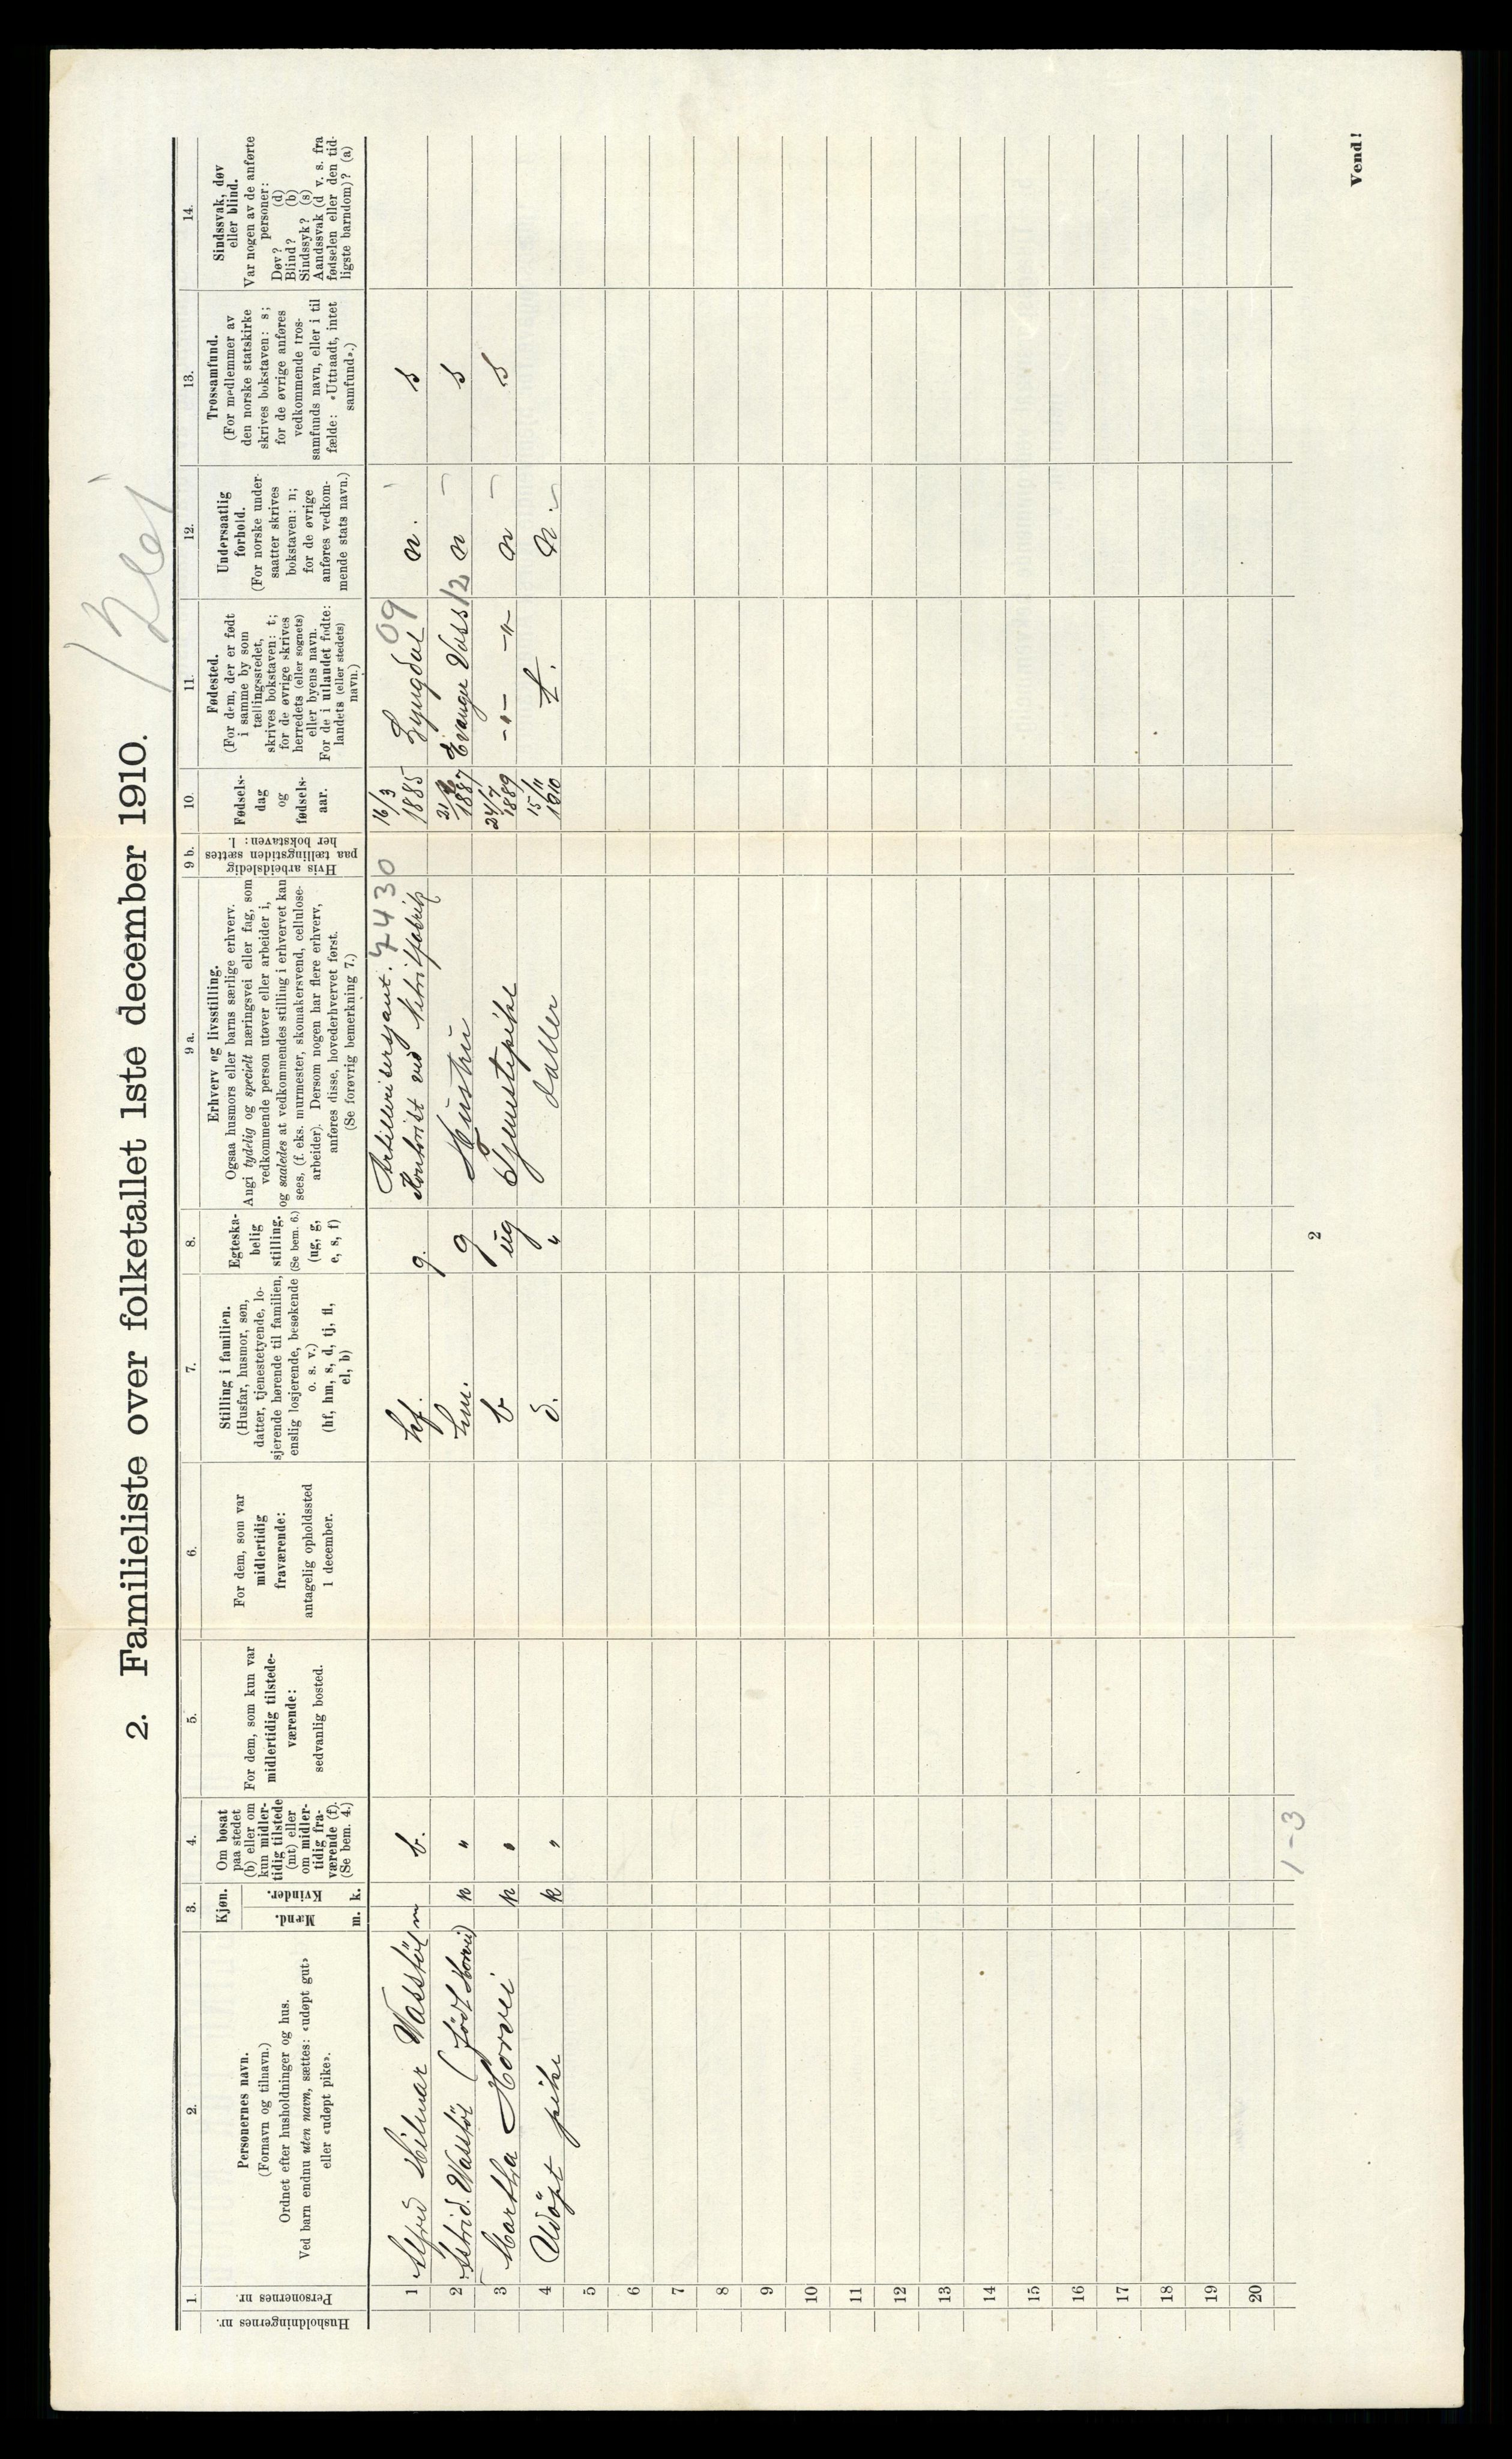 2. Familieliste over folketallet 1ste december 1910.
1. 2. 3. 4. 5. 6. 7. 8. 9 a. 9 b. 10. 11. 12. 13. 14.
Husholdningernes nr.
Personernes nr.
Personernes navn.
(Fornavn og tilnavn.)
Ordnet efter husholdninger og hus.
Ved barn endnu uten navn, sættes: «udøpt gut»
eller «udøpt pike».
Kjøn.
Mænd.
Kvinder.
m. k.
Om bosat
paa stedet
(b) eller om
kun midler-
tidig tilstede
(mt) eller
om midler-
tidig fra-
værende (f).
(Se bem. 4.)
For dem, som kun var
midlertidig tilstede-
værende:
sedvanlig bosted.
For dem, som var
midlertidig
fraværende:
antagelig opholdssted
1 december.
Stilling i familien.
(Husfar, husmor, søn,
datter, tjenestetyende, lo-
sjerende hørende til familien,
enslig losjerende, besøkende
o. s. v.)
(hf, hm, s, d, tj, fl,
el, b)
Egteska-
belig
stilling.
(Se bem. 6.)
(ug, g,
e, s, f)
Erhverv og livsstilling.
Ogsaa husmors eller barns særlige erhverv.
Angi tydelig og specielt næringsvei eller fag, som
vedkommende person utøver eller arbeider i,
og saaledes at vedkommendes stilling i erhvervet kan
sees, (f. eks. murmester, skomakersvend, cellulose-
arbeider). Dersom nogen har flere erhverv,
anføres disse, hovederhvervet først.
(Se forøvrig bemerkning 7.)
Hvis arbeidsledig
paa tællingstiden sættes
her bokstaven: l.
Fødsels-
dag
og
fødsels-
aar.
Fødested.
(For dem, der er født
i samme by som
tællingsstedet,
skrives bokstaven: t;
for de øvrige skrives
herredets (eller sognets)
eller byens navn.
For de i utlandet fødte:
landets (eller stedets)
navn.)
Undersaatlig
forhold.
(For norske under-
saatter skrives
bokstaven: n;
for de øvrige
anføres vedkom-
mende stats navn.)
Trossamfund.
(For medlemmer av
den norske statskirke
skrives bokstaven: s;
for de øvrige anføres
vedkommende tros-
samfunds navn, eller i til
fælde: «Uttraadt, intet
samfund».)
Sindssvak, døv
eller blind.
Var nogen av de anførte
personer:
Døv? (d)
Blind? (b)
Sindssyk? (s)
Aandssvak (d v. s. fra
fødselen eller den tid-
ligste barndom)? (a)
1 Alfred Hilmar Vasstøl m b. hf. g. Artillerisersjant. 7430 Kontorist ved Nitritfabrik 16/3 1885 Lyngdal 09 n. s
2 Astrid Vasstøl (født Horvei) k " hm. g Hustru 1887 Evanger Voss 12 n s
3 Martha Horvei k " b ug Tjenestepike 24/7 1889 -"- -"- n s
4 Udöpt pike k " d. " datter 15/11 1910 t. n.
5
6
7
8
9
10
11
12
13
14
15
16
17
18
19
20
1-3
2
Vend!